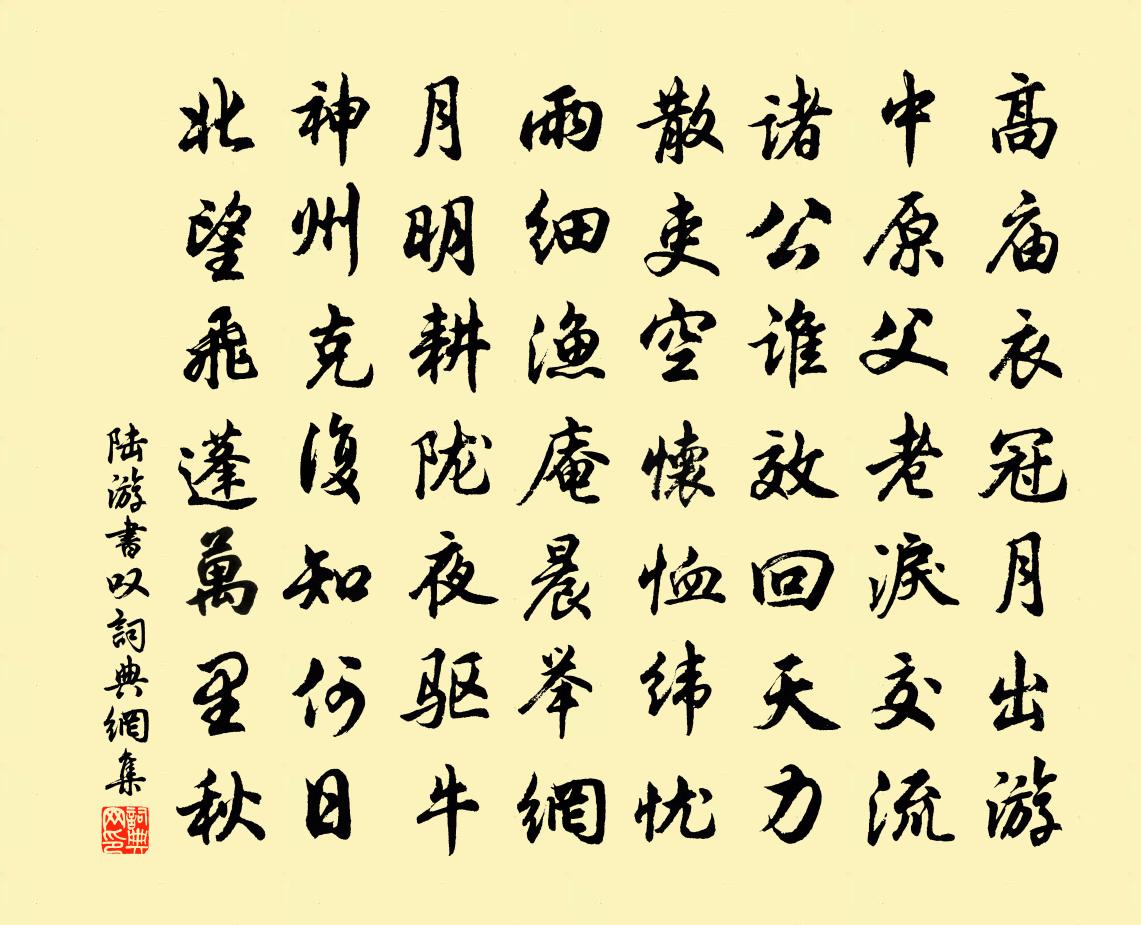 高庙衣冠月出游
中原父老淚交流
诸公谁效回天力
散吏空懷恤纬忧
雨细渔庵晨举網
月明耕陇夜驱牛
神州克復知何日
北望飛蓬萬里秋
陆游書叹詞典網集
詞典网印